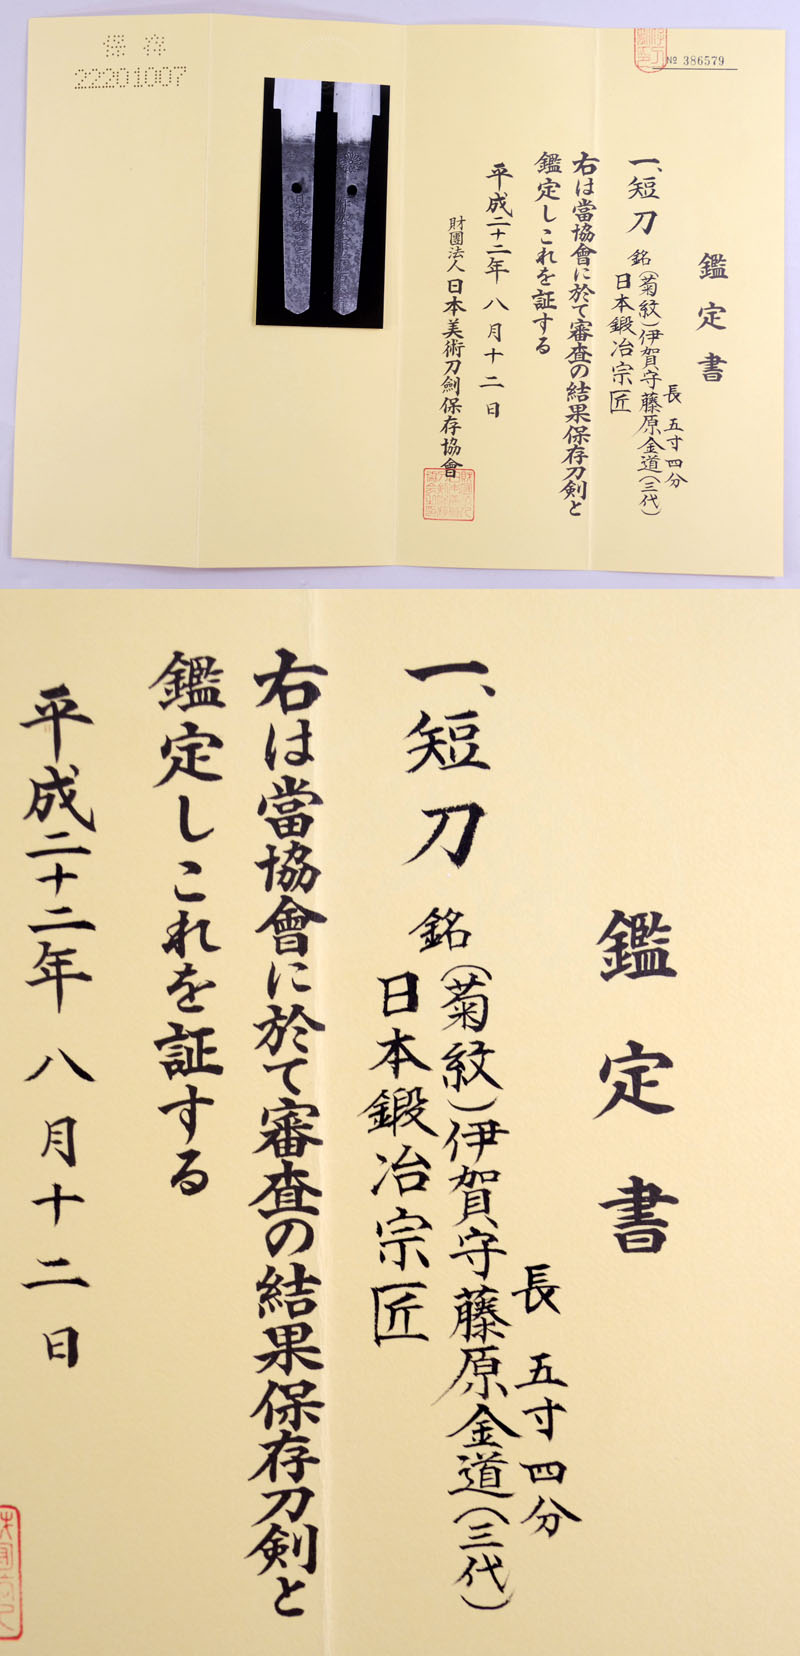 保存
22201007
№ 386579
鑑定書
一、短刀 銘（菊紋）伊賀守藤原金道（三代）
日本鍛冶宗匠
長 五寸四分
右は當協會に於て審査の結果保存刀剣と
鑑定しこれを証する
平成二十二年 八月十二日
財團法人日本美術刀劍保存協會
鑑定書
長 五寸四分
一、短刀 銘（菊紋）伊賀守藤原金道（三代）
日本鍛冶宗匠
右は當協會に於て審査の結果保存刀剣と
鑑定しこれを証する
平成二十二年 八月十二日